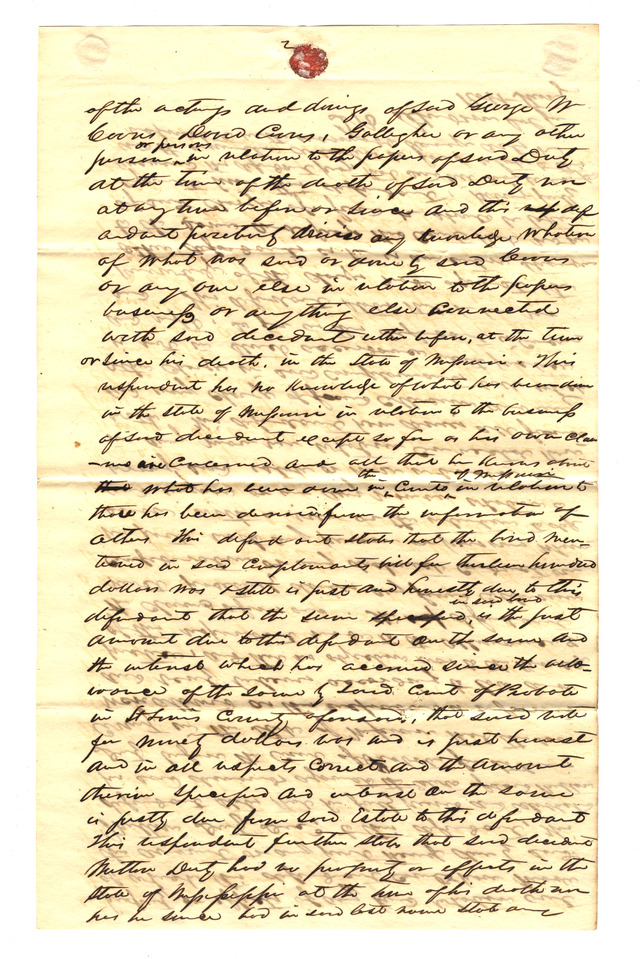 2
of the actings and doings of said George W
Coons, David Coons, Gallagher or any other
person or persons in relation to the papers of said Duty
at the time of the death of said Duty nor
at any time before or since and this def
endant positively denies any knowledge Whatever
of What was said or done by said Coons
or any one else in relation to the papers
business or anything else Connected
with said decedant either before, at the time
or since his death, in the State of Missouri. This
respondent has no knowledge of What has been done
in the state of Missouri in relation to the business
of said decedant except so far as his own clai
-ms are Concerned and all that he knows about
what has been done in the Courts of Missouri in relation to
those has been derived from the information of
others. This defendant states that the bond men-
tioned in said Complainants bill for thirteen hundred
dollars was & still is just and honestly due to this
defendant that the sum in said bond is the just
amount due to this defendant on the same and
the interest which has accrued since the allo-
wance of the same by said Court of Probate
in St Louis County aforesaid, that said note
for ninety dollars was and is just honest
and in all respects Correct and the amount
therein specified and interest on the same
is justly due from said Estate to this defendant
This respondent further states that said decedant
Milton Duty had no property or effects in the
State of Mississippi at the time of his death nor
has he since had in said last name state any